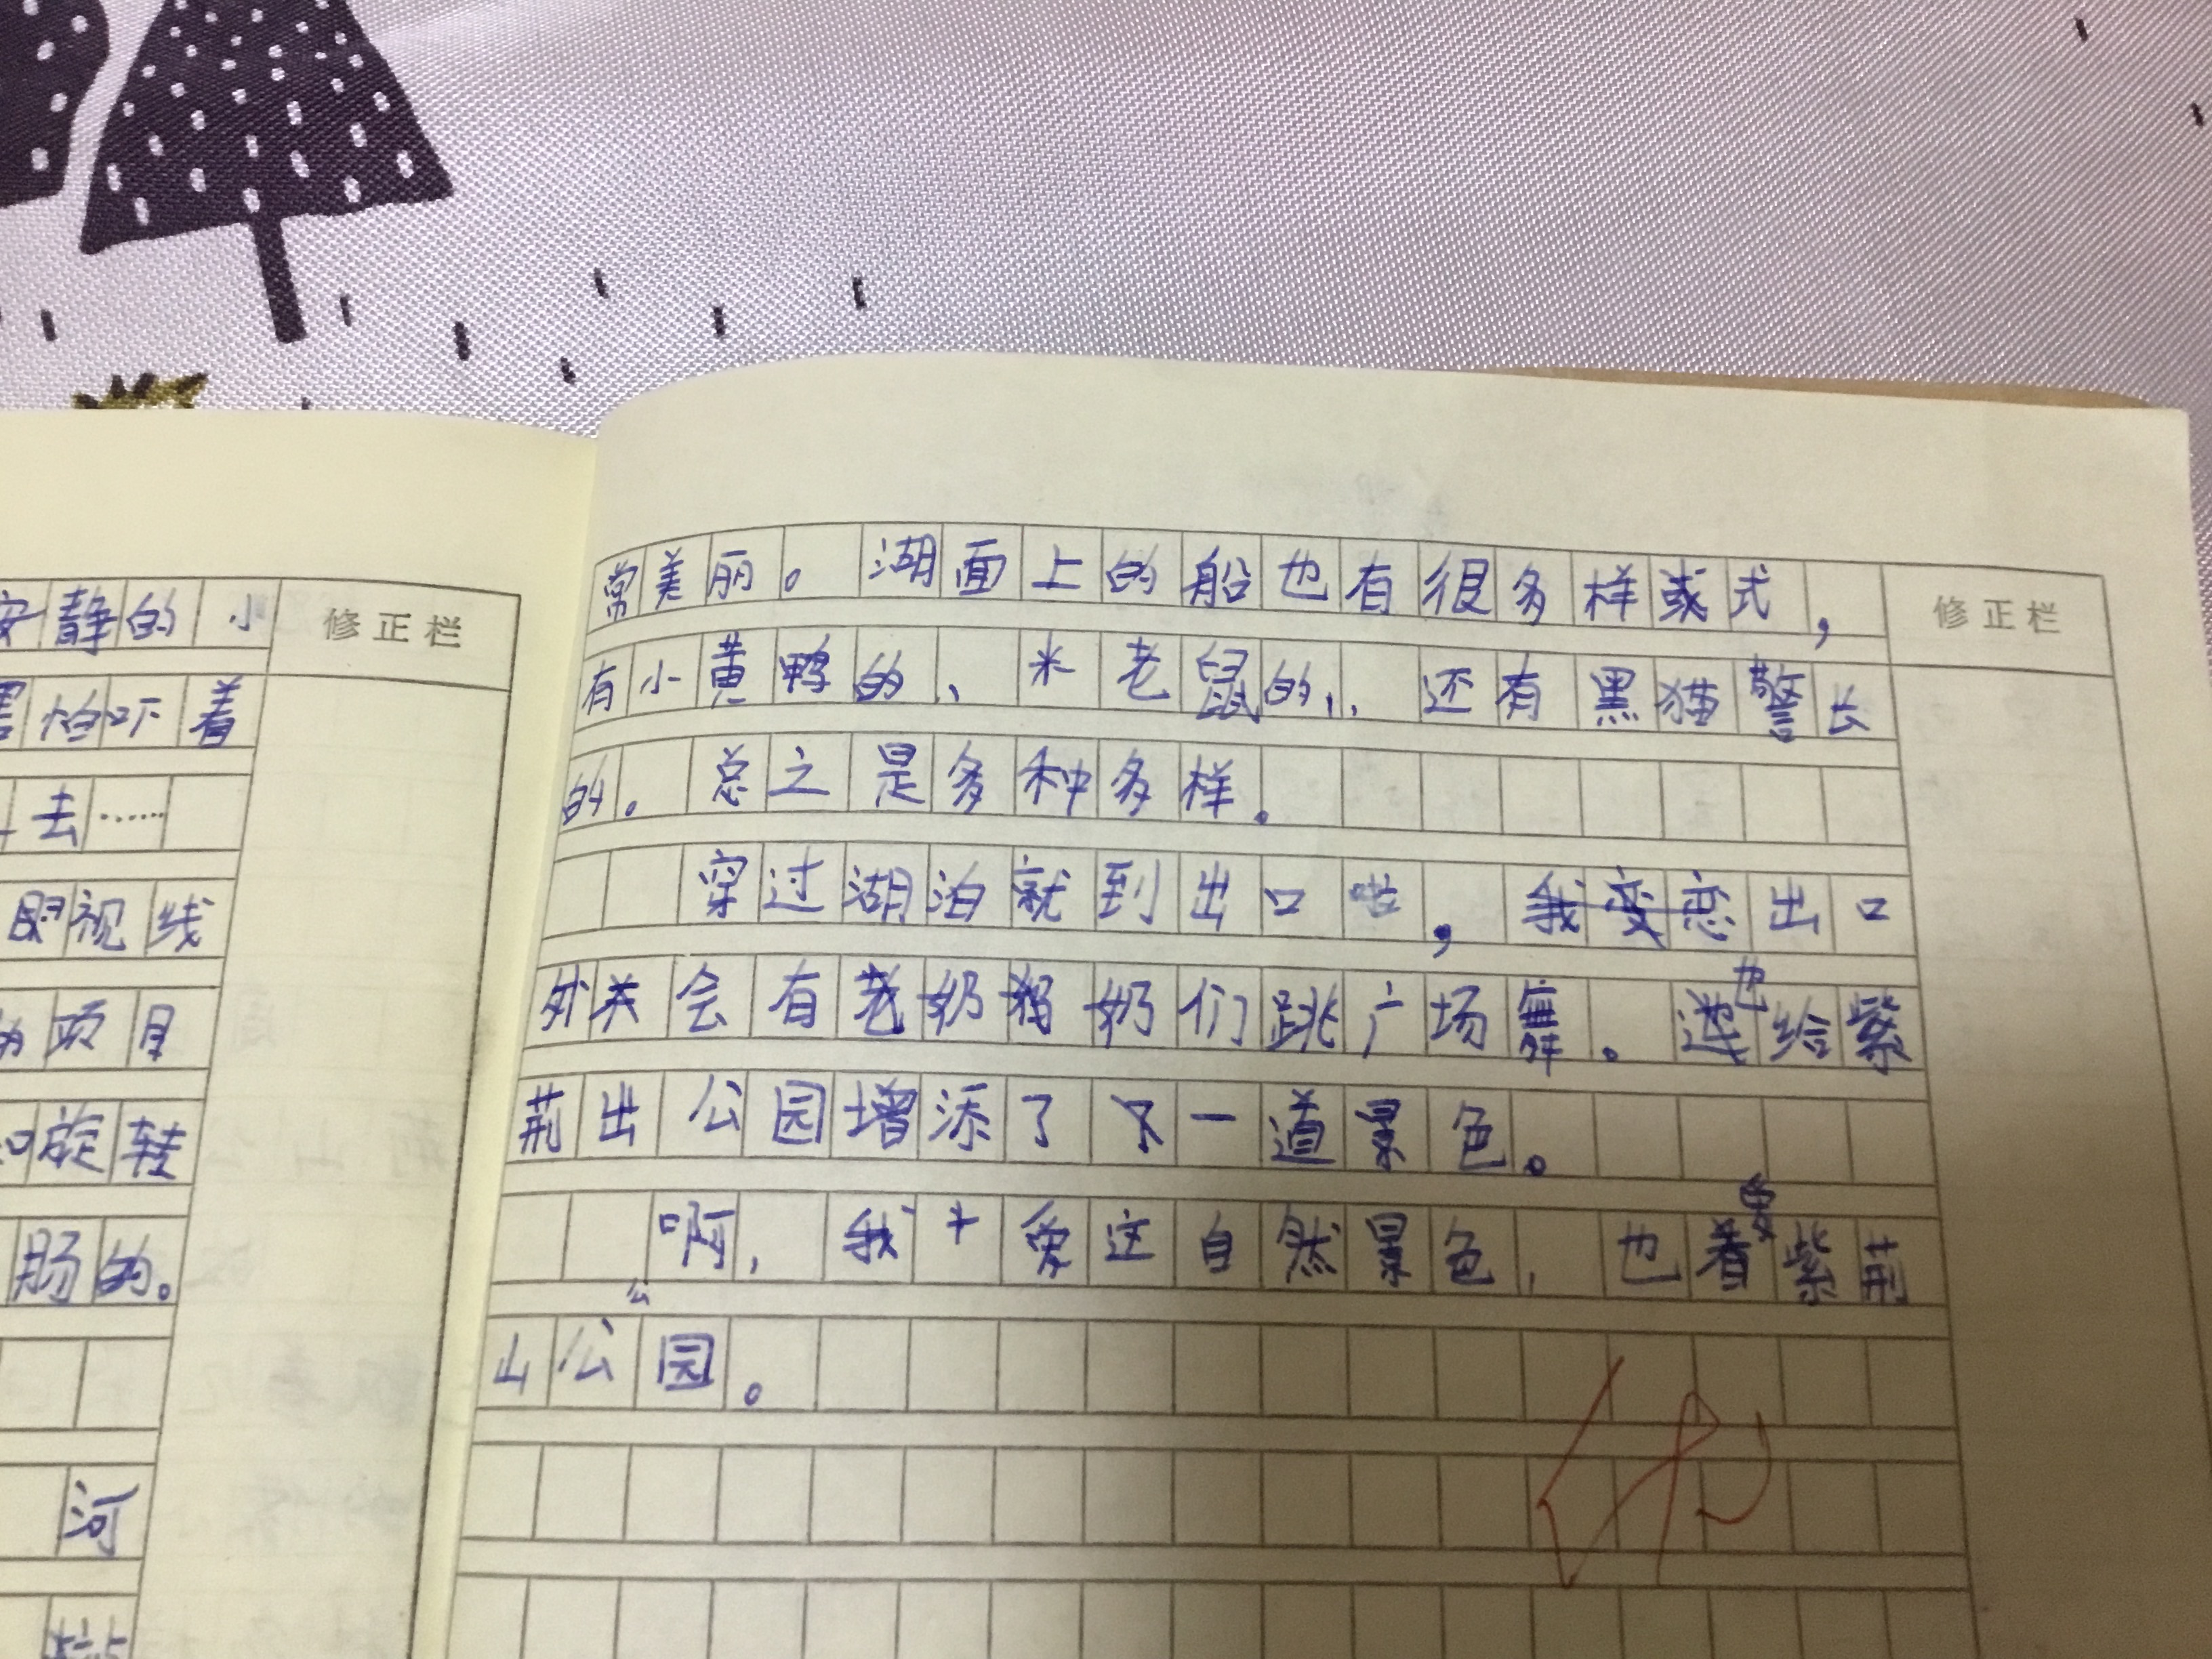 安静的小
害怕吓着
去……
眼视线
的项目
和旋转
肠的。
河
修正栏
常美丽。湖面上的船也有很多样式,
有小黄鸭的、米老鼠的,还有黑猫警长
的。总之是多种多样。
穿过湖泊就到出口啦,出口
外关会有老奶奶们跳广场舞。这也给紫
荆出公园增添了一道景色。
啊,我爱这自然景色,也爱紫荆
山公园。
修正栏